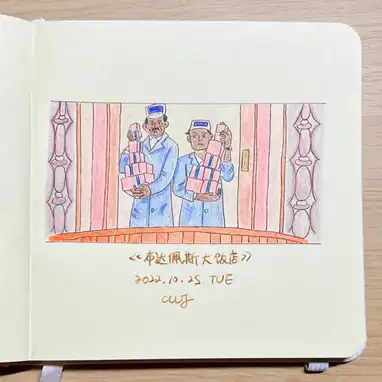 <<布达佩斯大饭店>>
2022.10.25 TUE